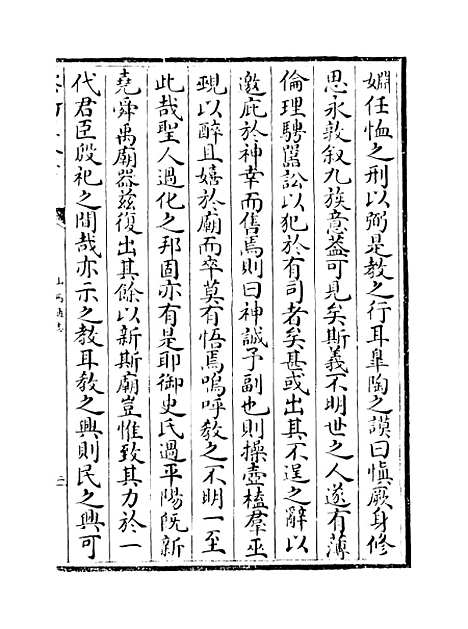 婣任恤之刑以弼是教之行耳臯陶之謨曰慎厥身修
思永敦叙九族意葢可見矣斯義不明世之人遂有薄
倫理騁嚚訟以犯於有司者矣甚或出其不逞之辭以
邀庇於神幸而售焉則曰神誠予副也則操壺榼羣巫
覡以醉且嬉於廟而卒莫有悟焉嗚呼教之不明一至
此哉聖人過化之邦固亦有是耶御史氏過平陽既新
堯舜禹廟器兹復出其餘以新斯廟豈惟致其力於一
代君臣殷祀之間哉亦示之教耳教之興則民之興可
山西通志